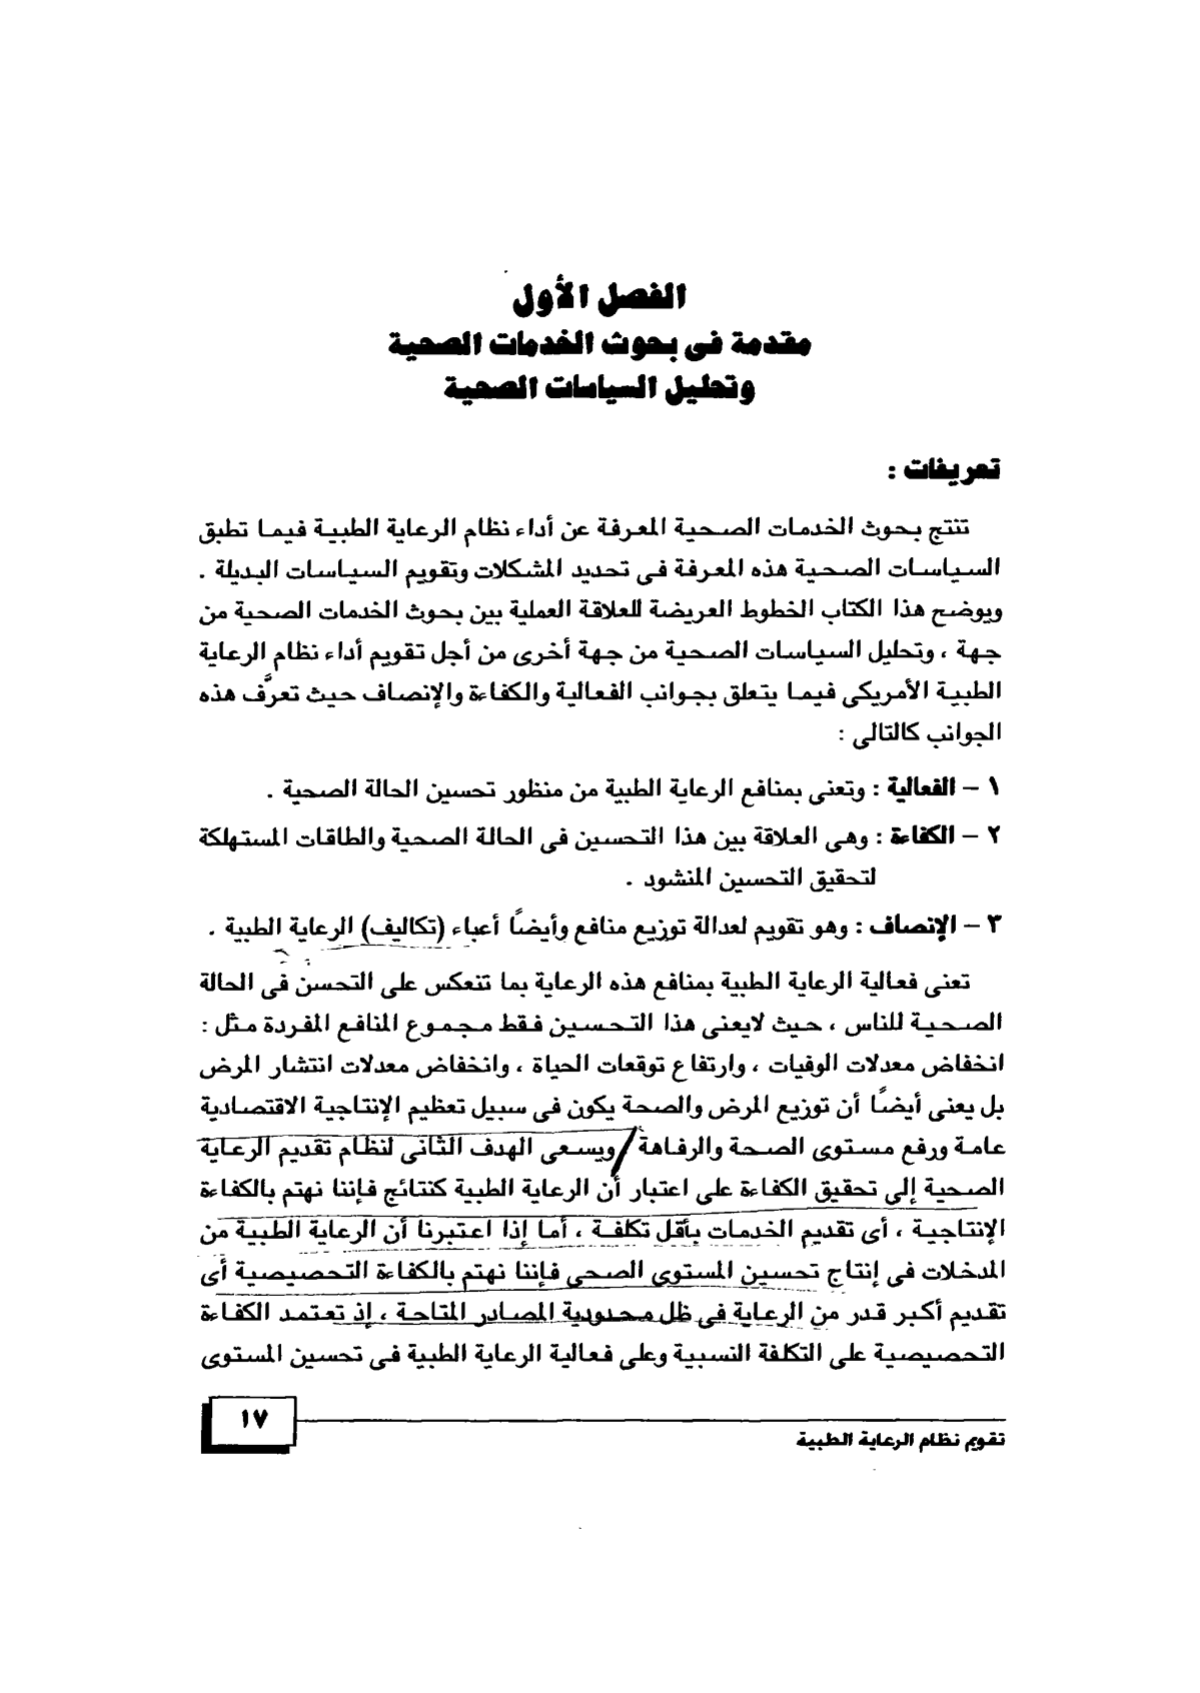 الفصل الأول
مقدمة فى بحوث الخدمات الصحية
وتحليل السياسات الصحية
تعريفات :
تنتج بحوث الخدمات الصحية المعرفة عن أداء نظام الرعاية الطبية فيما تطبق
السياسات الصحية هذه المعرفة فى تحديد المشكلات وتقويم السياسات البديلة .
ويوضح هذا الكتاب الخطوط العريضة للعلاقة العملية بين بحوث الخدمات الصحية من
جهة ، وتحليل السياسات الصحية من جهة أخرى من أجل تقويم أداء نظام الرعاية
الطبية الأمريكى فيما يتعلق بجوانب الفعالية والكفاءة والإنصاف حيث تعرَّف هذه
الجوانب كالتالى :
١ – الفعالية : وتعنى بمنافع الرعاية الطبية من منظور تحسين الحالة الصحية .
٢ – الكفاءة : وهى العلاقة بين هذا التحسين فى الحالة الصحية والطاقات المستهلكة
لتحقيق التحسين المنشود .
٣ – الإنصاف : وهو تقويم لعدالة توزيع منافع وأيضًا أعباء (تكاليف) الرعاية الطبية .
تعنى فعالية الرعاية الطبية بمنافع هذه الرعاية بما تنعكس على التحسن فى الحالة
الصحية للناس ، حيث لايعنى هذا التحسين فقط مجموع المنافع المفردة مثل :
انخفاض معدلات الوفيات ، وارتفاع توقعات الحياة ، وانخفاض معدلات انتشار المرض
بل يعنى أيضًا أن توزيع المرض والصحة يكون فى سبيل تعظيم الإنتاجية الاقتصادية
عامة ورفع مستوى الصحة والرفاهة ويسعى الهدف الثانى لنظام تقديم الرعاية
الصحية إلى تحقيق الكفاءة على اعتبار أن الرعاية الطبية كنتائج فإننا نهتم بالكفاءة
الإنتاجية ، أى تقديم الخدمات بأقل تكلفة ، أما إذا اعتبرنا أن الرعاية الطبية من
المدخلات فى إنتاج تحسين المستوى الصحى فإننا نهتم بالكفاءة التخصيصية أى
تقديم أكبر قدر من الرعاية فى ظل محدودية المصادر المتاحة ، إذ تعتمد الكفاءة
التخصيصية على التكلفة النسبية وعلى فعالية الرعاية الطبية فى تحسين المستوى
١٧
تقويم نظام الرعاية الطبية